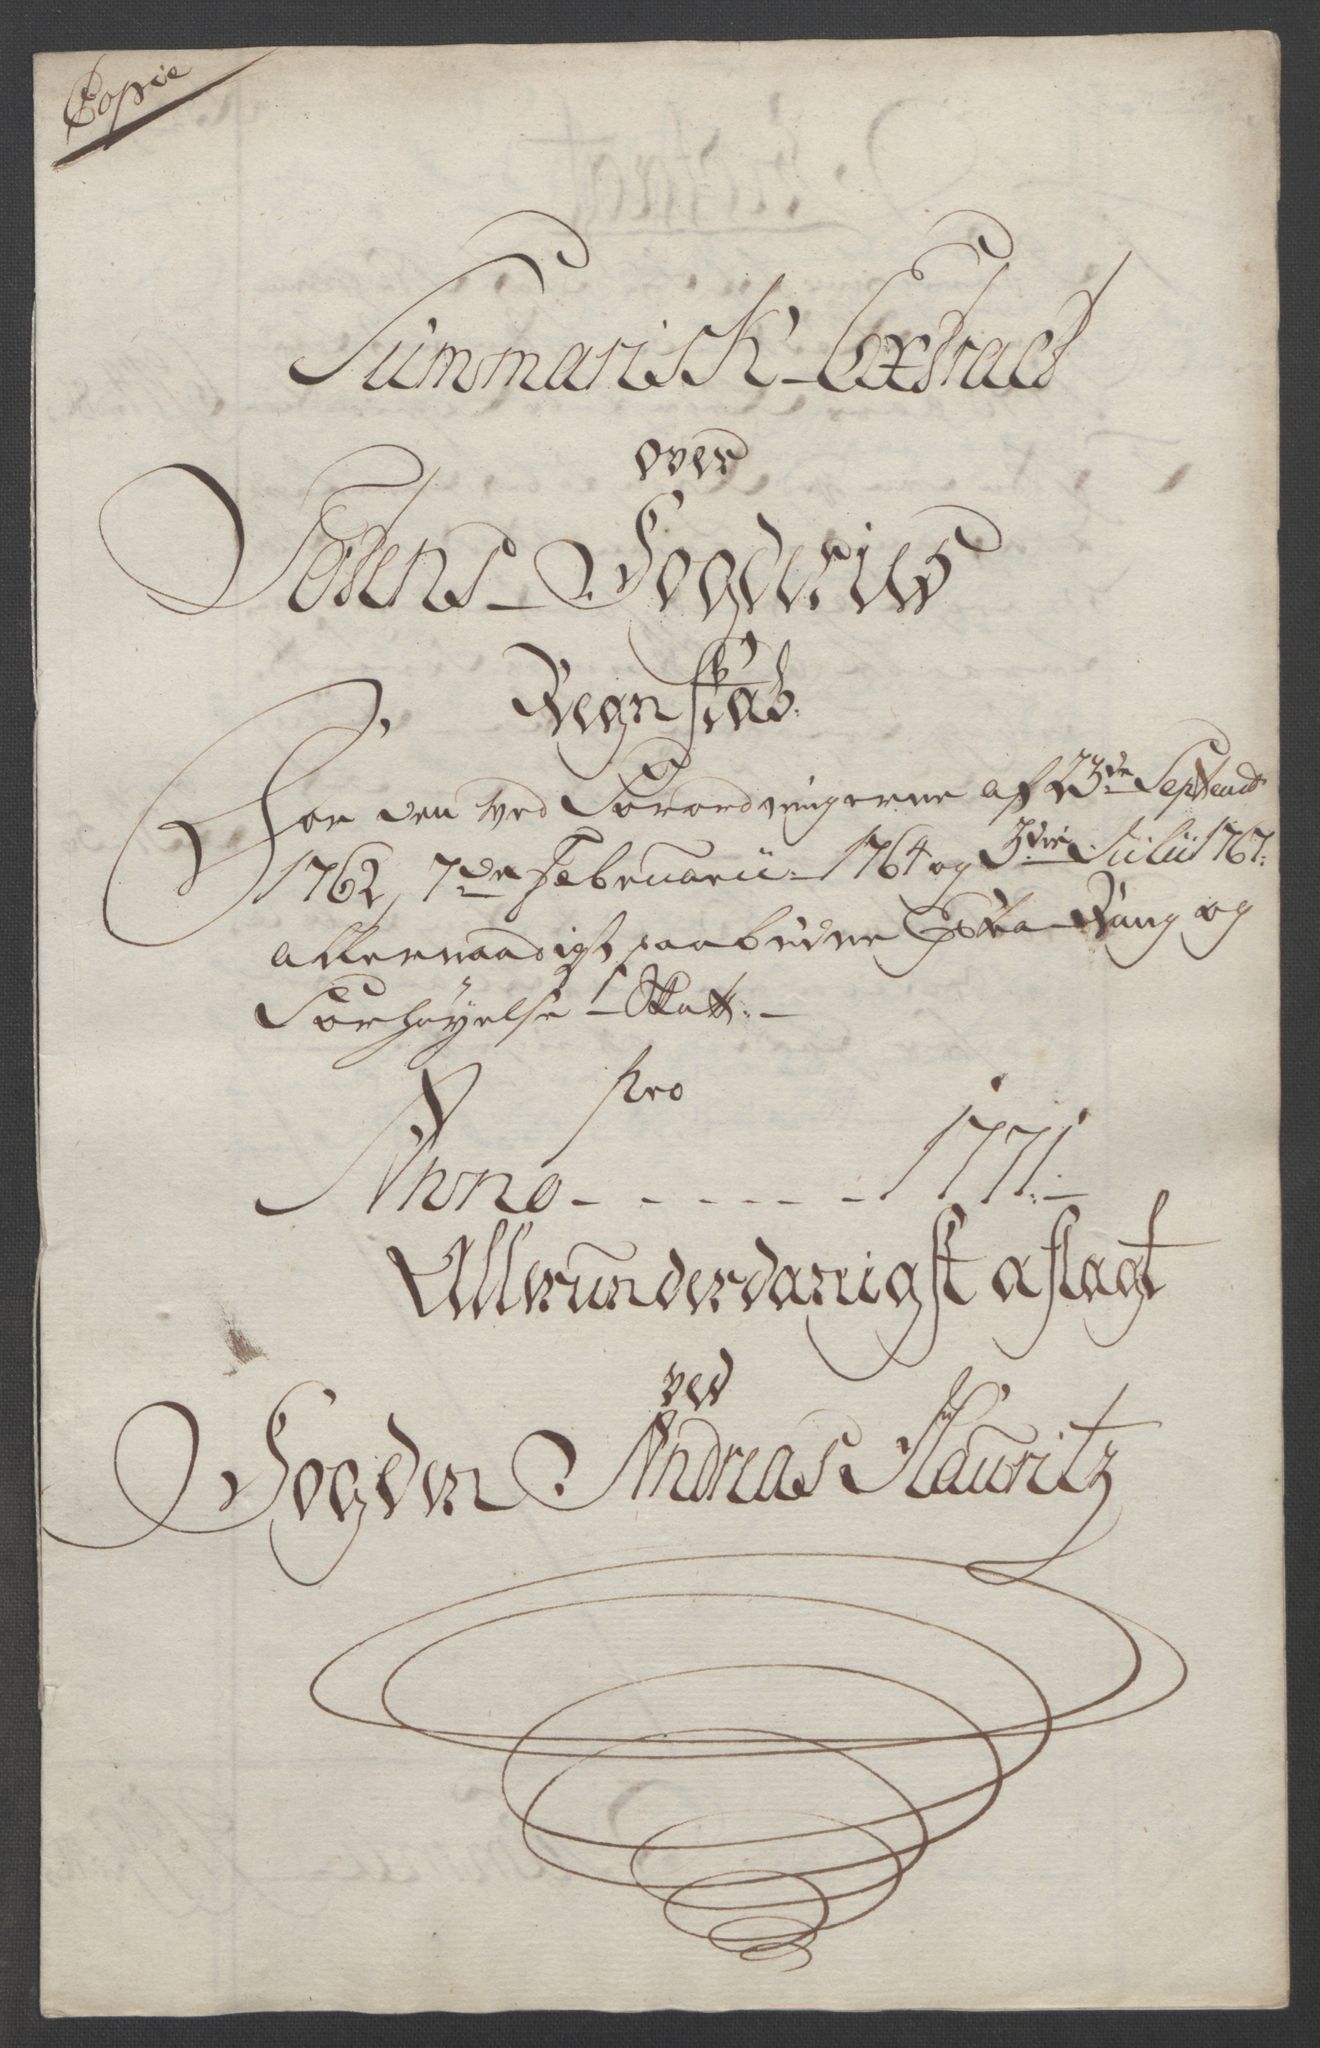 Copie
Summarisk Extract
over
Totens Fogderies
Regnskab
For den ved Forordningerne af 23de Septembr
1762, 7de Februarii 1764 og 3die Julii 1767.
allernaadigst paabudne Extra Rang og
Forhøyelse Skatt.
pro
Anno - - - - - - 1771.
Allerunderdanigst aflagt
ved
Fogden Andreas Hauritz